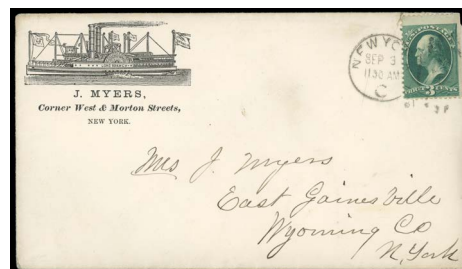 J. MYERS,
Corner West & Morton Streets,
NEW YORK.
NEW YO
SEP 3
11 30 AM
C
3 CENTS
Mrs J. Myers
East Gainesville
Wyoming Co
N. York